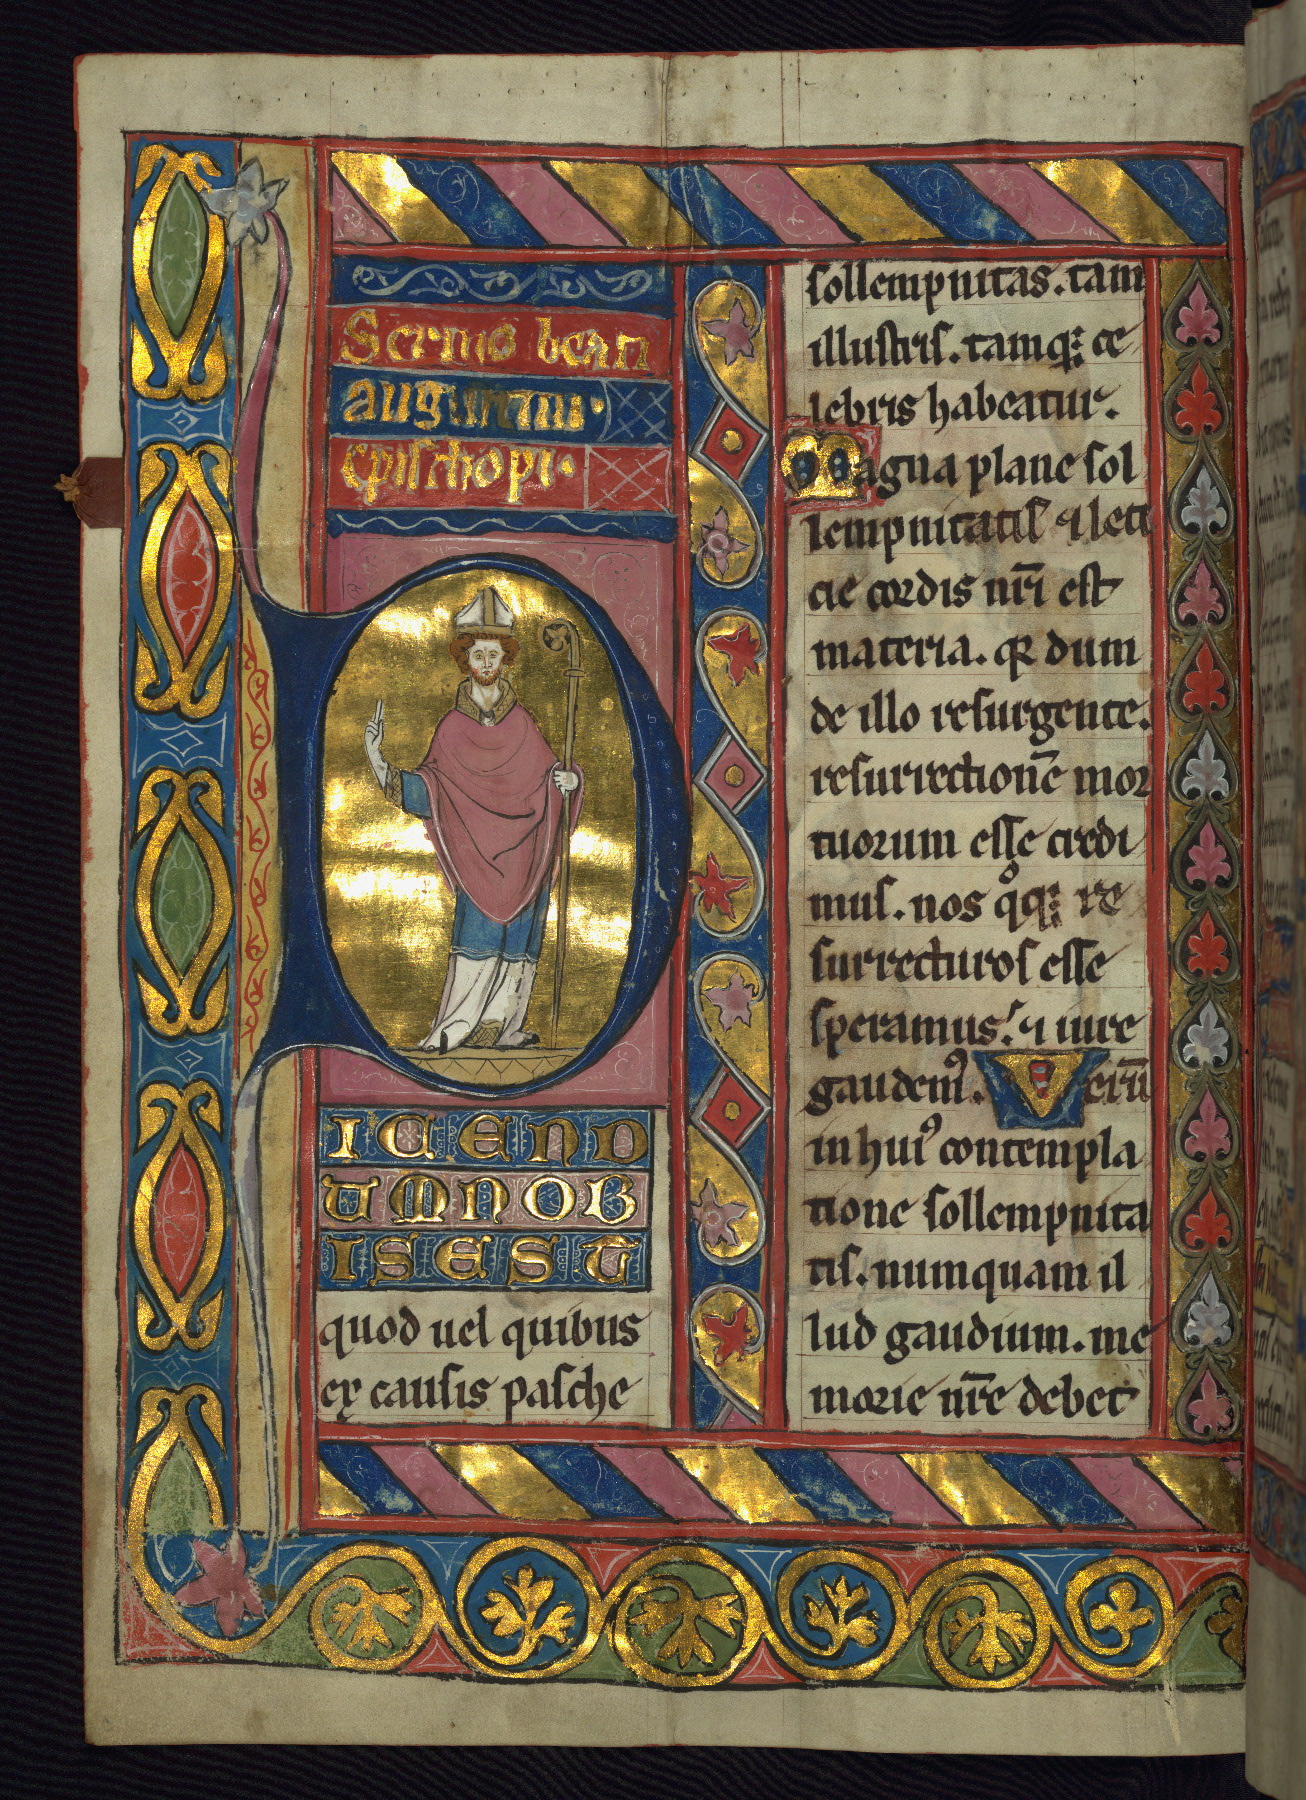 Sermo beati
augustini
epischopi.
DICEND
UMNOB
ISEST
quod uel quibus
ex causis pasche
sollempnitas. tam
illustris. tamq; ce
lebris habeatur.
Magna plane sol
lempnitatis ⁊ leti
cie cordis nr̄i est
materia. qꝛ dum
de illo resurgente.
resurrectionē mor
tuorum esse credi
mus. nos qͦq; re
surrecturos esse
speramus. ⁊ iure
gaudemꝰ. Uerū
in huiꝰ contempla
tione sollempnita
tis. numquam il
lud gaudium. me
morie nr̄e debet